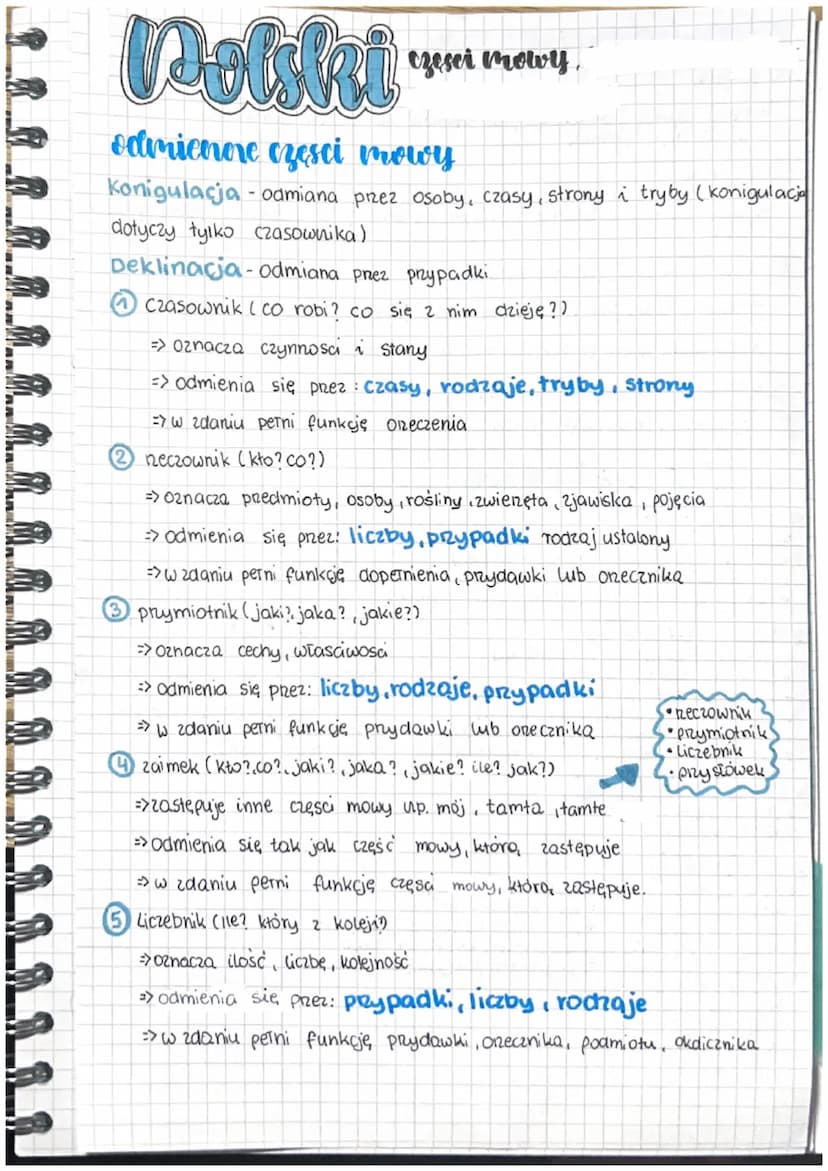 Polski części mowy.
odmienne części mowy
Konigulacja - odmiana przez osoby, czasy, strony i tryby (konigulacja
dotyczy tylko czasownika)
Deklinacja - odmiana przez przypadki
1 Czasownik (co robi? co się z nim dzieję?)
=> oznacza czynności i stany
=> odmienia się przez : czasy, rodzaje, tryby, strony
=> w zdaniu pełni funkcję orzeczenia
2 rzeczownik (kto? co?)
=> oznacza przedmioty, osoby, rośliny, zwierzęta, zjawiska, pojęcia
=> odmienia się przez: liczby, przypadki rodzaj ustalony
=> w zdaniu pełni funkcję dopełnienia, przydawki lub orzecznika
3 przymiotnik (jaki?, jaka?, jakie?)
=> oznacza cechy, właściwości
=> odmienia się przez: liczby, rodzaje, przypadki
=> w zdaniu pełni funkcję przydawki lub orzecznika
• rzeczownik
• przymiotnik
• liczebnik
• przysłówek
4 zaimek (kto?, co?, jaki?, jaka?, jakie? ile? jak?)
=> zastępuje inne części mowy np. mój, tamta, tamte
=> odmienia się tak jak część mowy, którą zastępuje
=> w zdaniu pełni funkcję części mowy, którą zastępuje.
5 Liczebnik (ile? który z kolei?)
=> oznacza ilość, liczbę, kolejność
=> odmienia się przez: przypadki, liczby, rodzaje
=> w zdaniu pełni funkcję przydawki, orzecznika, podmiotu, okdicznika